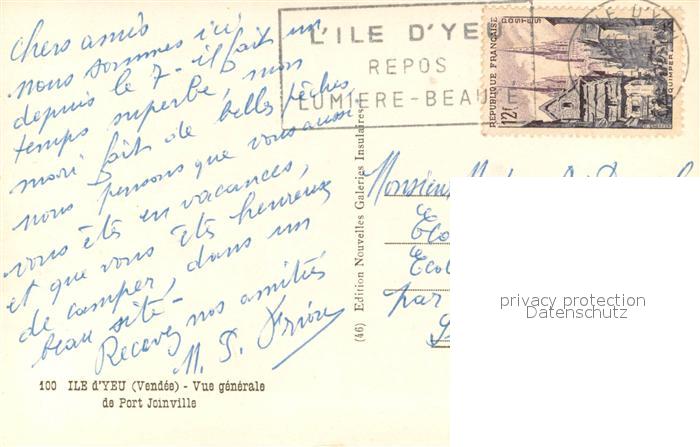 Chers amis
nous sommes ici
depuis le 7 - il fait un
temps superbe, mon
mari fait de belles pêches
nous pensons que vous aussi
vous êtes en vacances,
et que vous êtes heureux
de camper, dans un
beau site -
Recevez nos amitiés
M. P. Frière
100 ILE d'YEU (Vendée) - Vue générale
de Port Joinville
(46) Edition Nouvelles Galeries Insulaires
L'ILE D'YEU
REPOS
LUMIERE-BEAUTE
POSTES
REPUBLIQUE FRANÇAISE
12F
QUIMPER
ILE D'YEU
Monsieur
Ecol
par
privacy protection
Datenschutz